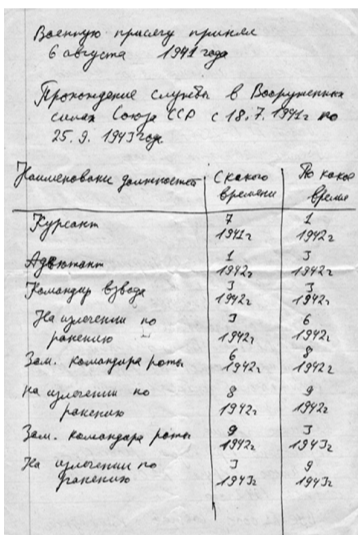 Военную присягу принял
6 августа 1941 года
Прохождение службы в Вооруженных
силах Союза ССР с 18.7.1941г по
25.9.1943 год
Наименование должностей С какого По какое
времени время
Курсант 7 1
1941г 1942г
Адъютант 1 3
1942г 1942г
Командир взвода 3 3
1942г 1942г
На излечении по 3 6
ранению 1942г 1942г
Зам. командира роты 6 8
1942г 1942г
на излечении по 8 9
ранению 1942г 1942г
Зам. командира роты 9 3
1942г 1943г
На излечении по 3 9
ранению 1943г 1943г